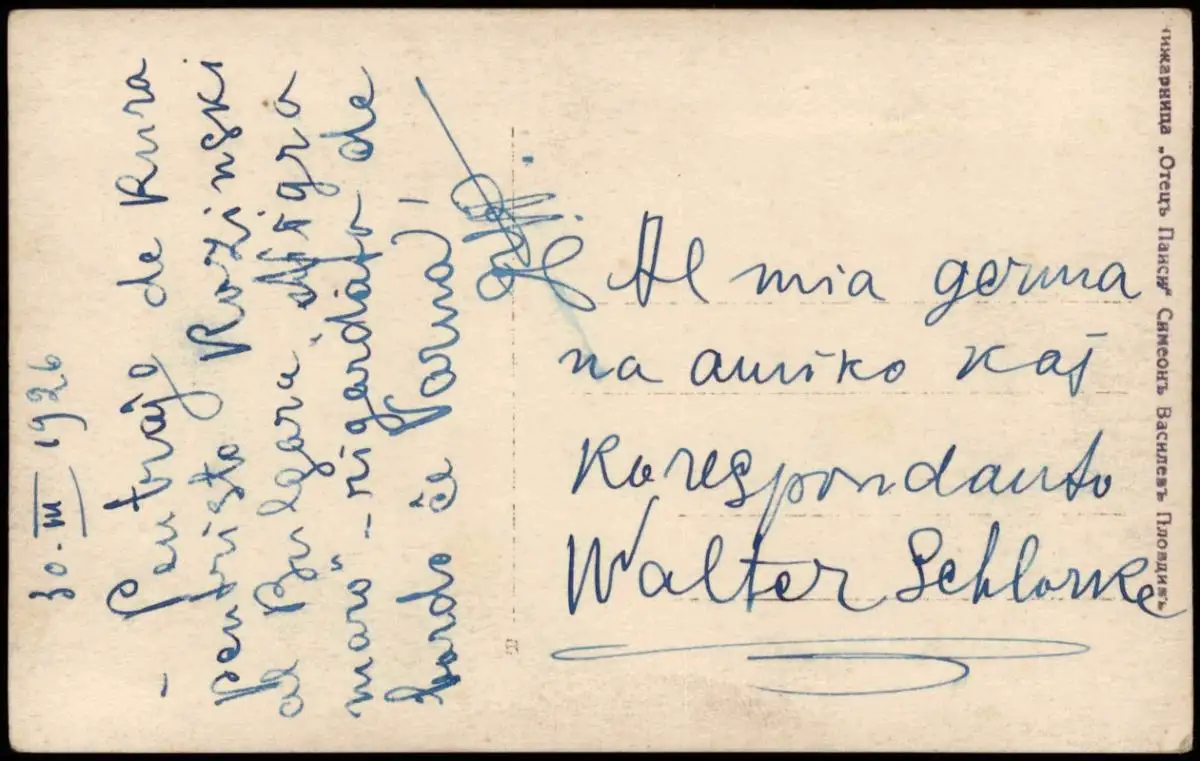 30.III 1926
- Pentraĵo de rusa
pentristo Rozinski
al Bulgara nigra
maro" - rigardiato de
bordo ĉe Varna!
Al mia germa
na amiko kaj
korespondanto
Walter Schlonke
нижарница „Отецъ Паиси" Симеонъ Василевъ Пловдивъ